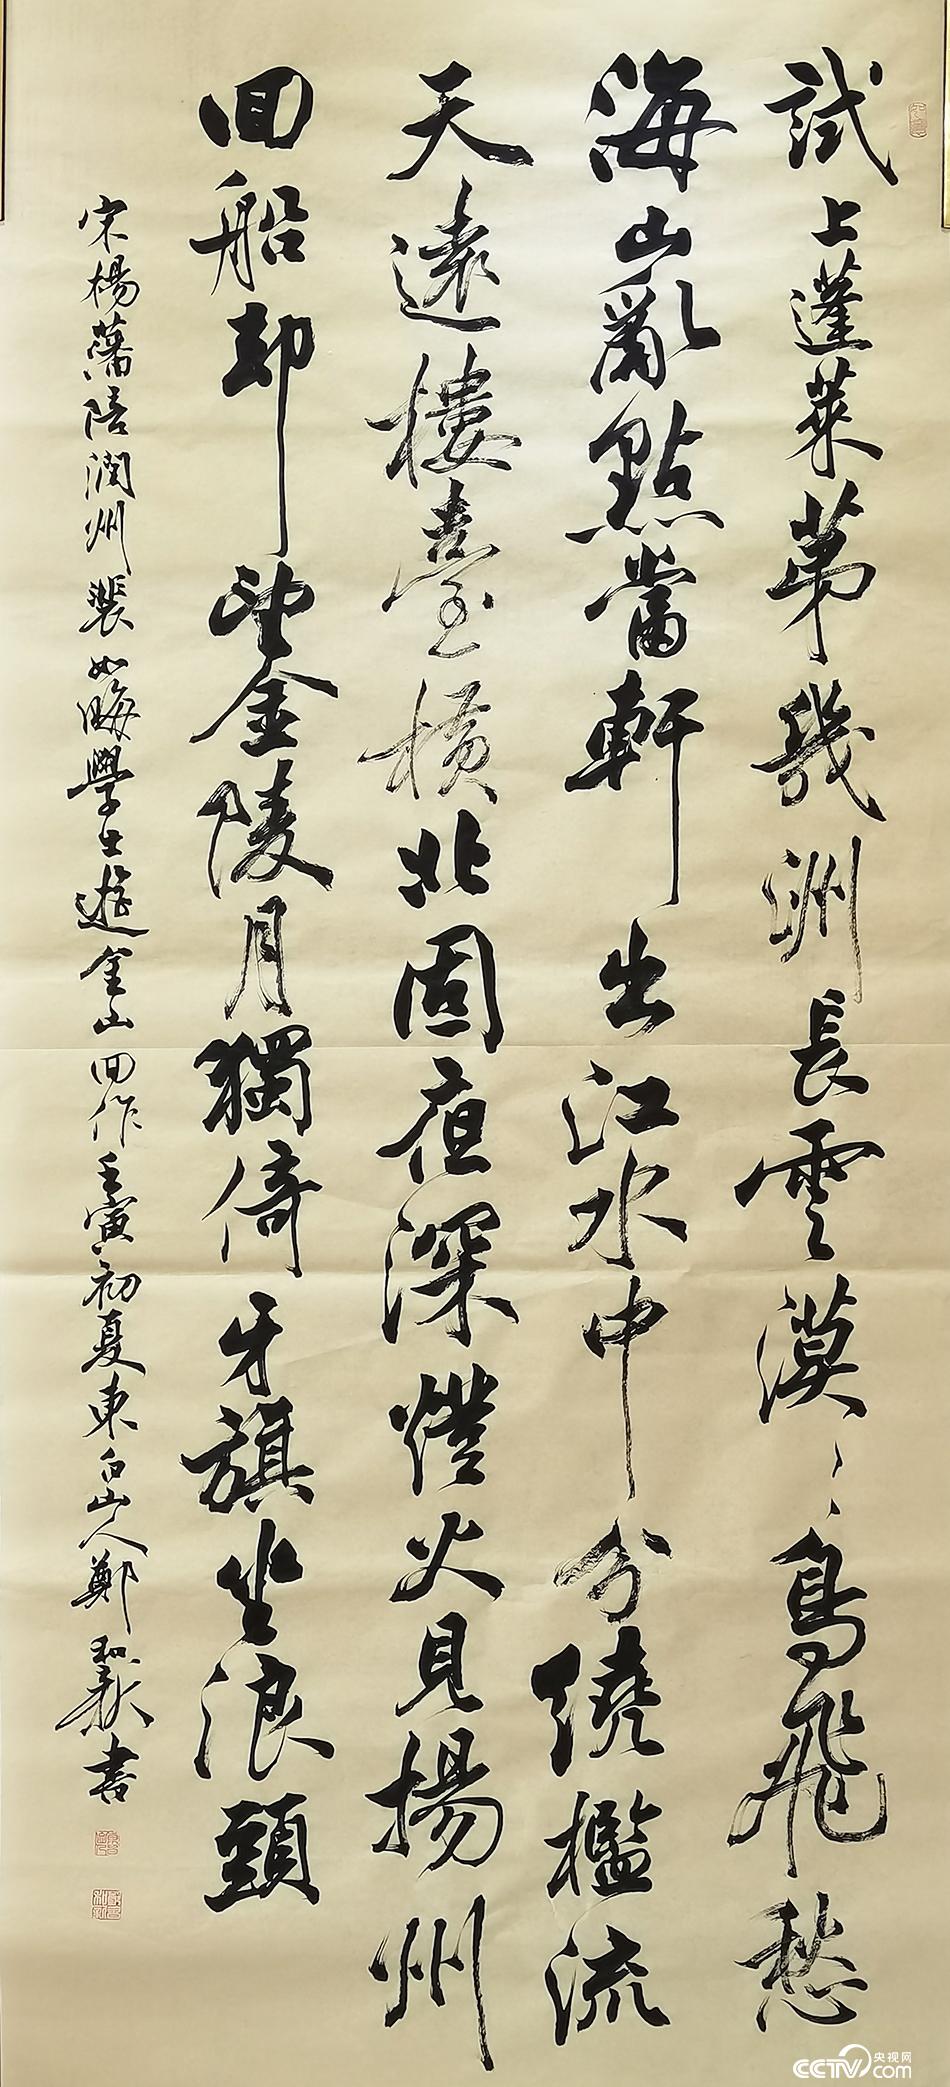 試上蓬萊第幾洲長雲漠〻鳥飛愁
海山亂點當軒出江水中分繞檻流
天遠樓臺橫北固夜深燈火見揚州
回船卻望金陵月獨倚牙旗坐浪頭
宋楊蟠陪潤州裴如晦學士遊金山回作壬寅初夏東白山人鄭和新書
CCTV.com 央视网